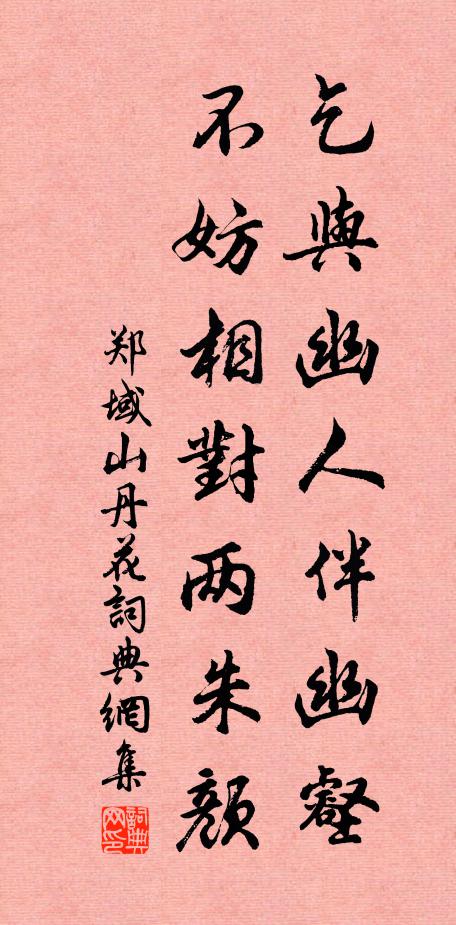 乞與幽人伴幽壑
不妨相對两朱顏
郑域山丹花詞典網集
詞典网印